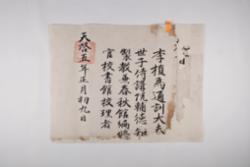 李楨爲通訓大夫
世子侍講院輔德知
製教兼春秋館編修
官校書館校理者
天啓五年正月初九日